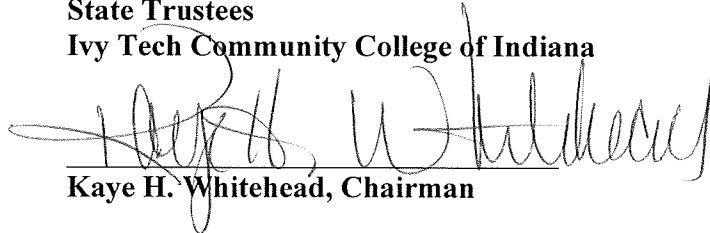 State Trustees
Ivy Tech Community College of Indiana
Kaye H. Whitehead
Kaye H. Whitehead, Chairman